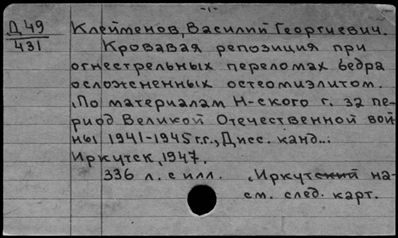 -1-
Д 49
431
Клейменов, Василий Георгиевич.
Кровавая репозиция при
огнестрельных переломах бедра
осложненных остеомиэлитом.
/По материалам Н-ского г. за пе-
риод Великой Отечественной вой
ны 1941-1945 г.г., Дисс. канд...
Иркутск, 1947.
336 л. с илл. /Иркутский на-
см. след. карт.